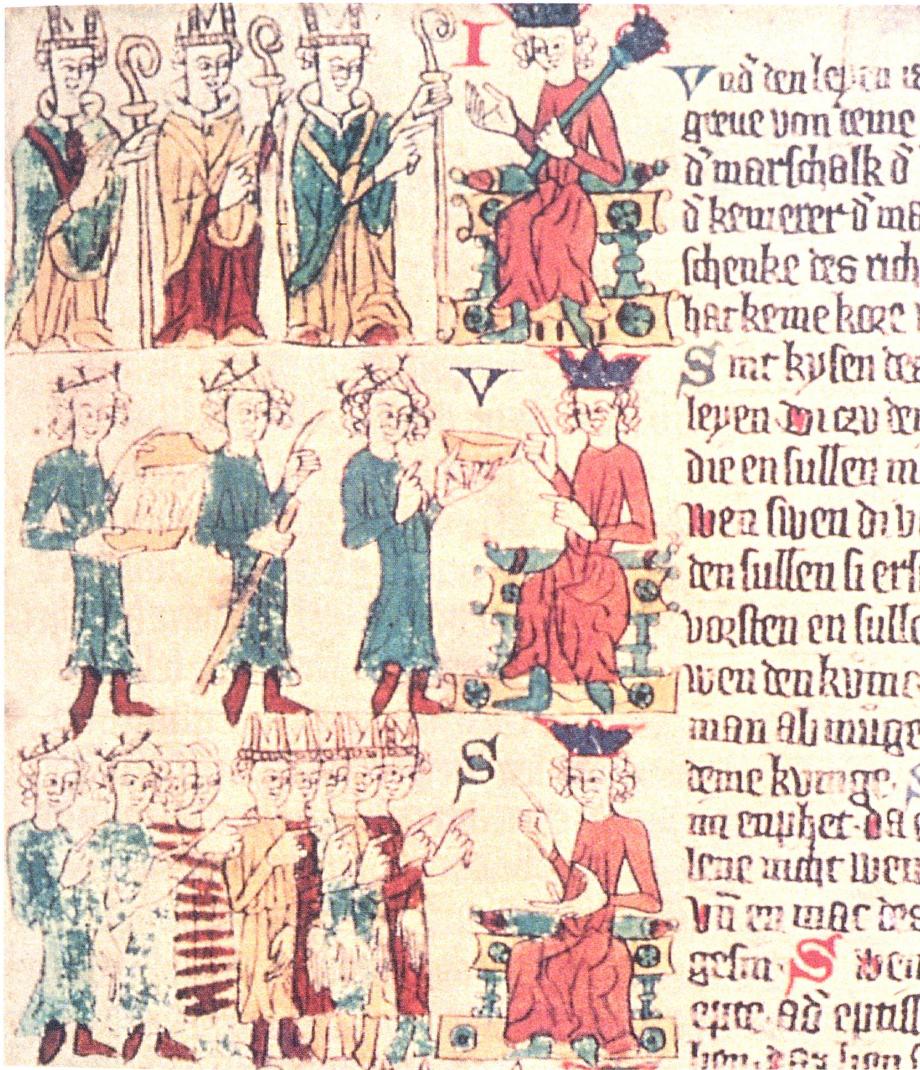 I
V
S
Vnd den leyen is
greue von deme
d̄ marschalk d̄
d̄ kemerer d̄ ma
schenke des rich
har keme kore
S int kysen des
leyen di czu de
die en sullen m
wen siven di v
den sullen si erst
vorsten en sulle
wen den kvnic
man ab muge
deme kvnige. S
im enphet. da e
lene nicht wer
Vn̄ en mac des
gesin. S wen
epte. ad̄ eptiss
hen. das hen